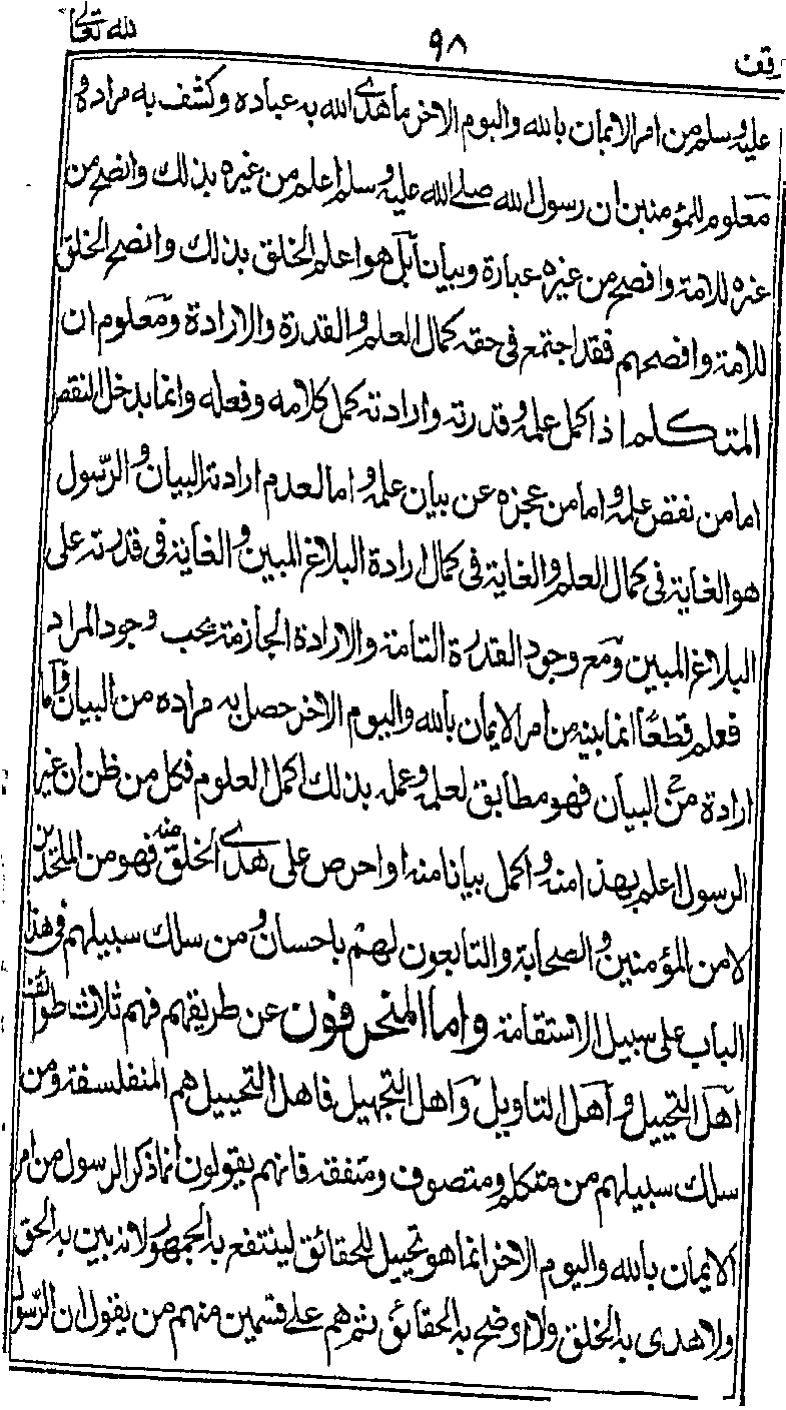 لله تعالى
٩٨
عليه وسلم من امر الايمان بالله واليوم الاخر ما هدى الله به عباده وكشف به مراده و
معلوم للمؤمنين ان رسول الله صلى الله عليه وسلم اعلم من غيره بذلك وانصح من
غيره للامة وافصح من غيره عبارة وبيانا بل هو اعلم الخلق بذلك وانصح الخلق
للامة وافصحهم فقد اجتمع فى حقه كمال العلم والقدرة والارادة ومعلوم ان
المتكلم اذا كمل علمه وقدرته وارادته كمل كلامه وفعله وانما يدخل النقص
اما من نقص علمه واما من عجزه عن بيان علمه واما لعدم ارادته البيان والرسول
هو الغاية فى كمال العلم والغاية فى كمال ارادة البلاغ المبين والغاية فى قدرته على
البلاغ المبين ومع وجود القدرة التامة والارادة الجازمة يجب وجود المراد
فعلم قطعا انما بينه من امر الايمان بالله واليوم الاخر حصل به مراده من البيان وما
ارادة من البيان فهو مطابق لعلمه وعمله بذلك اكمل العلوم فكل من ظن ان غير
الرسول اعلم بهذا منه واكمل بيانا منه او احرص على هدى الخلق منه فهو من الملحدين
لا من المؤمنين والصحابة والتابعون لهم باحسان ومن سلك سبيلهم فى هذا
الباب على سبيل الاستقامة واما المنحرفون عن طريقهم فهم ثلاث طوائف
اهل التخييل واهل التاويل واهل التجهيل فاهل التخييل هم المتفلسفة ومن
سلك سبيلهم من متكلم ومتصوف ومتفقه فانهم يقولون انما ذكر الرسول من امر
الايمان بالله واليوم الاخر انما هو تخييل للحقائق لينتفع به الجمهور لا انه بين به الحق
ولا هدى به الخلق ولا اوضح به الحقائق ثم هم على قسمين منهم من يقول ان الرسول